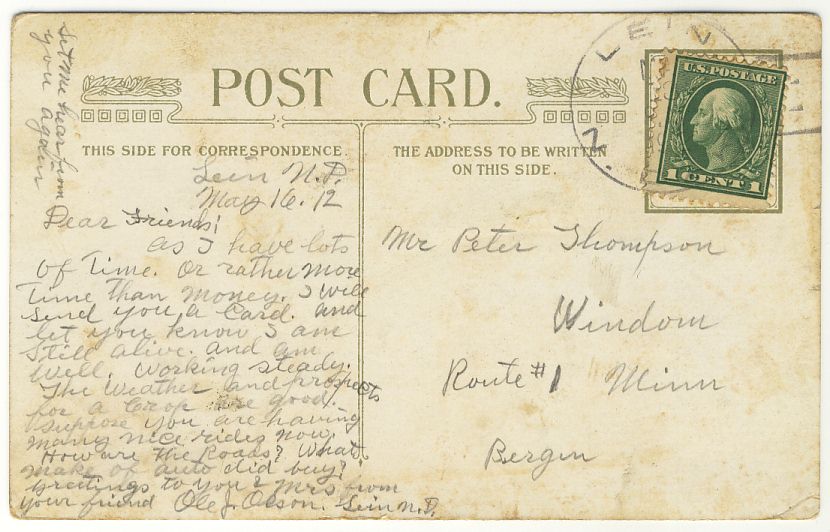 POST CARD.
THIS SIDE FOR CORRESPONDENCE.
THE ADDRESS TO BE WRITTEN
ON THIS SIDE.
LEIN
N.
U.S. POSTAGE
1 CENT 1
Lein N.D.
May 16. 12
Dear Friends!
As I have lots
Of Time. Or rather More
Time than Money. I Will
Send you a Card. and
let you know I am
Still alive. and am
Well. Working steady.
The Weather and prospects
for a Crop are good.
Suppose you are having
many nice rides now.
How are the Roads? What
make of auto did buy?
Greetings to you & Mrs from
your friend Ole J. Olson. Lein N.D.
Let Me hear from
you again
Mr Peter Thompson
Windom
Route #1 Minn
Bergen